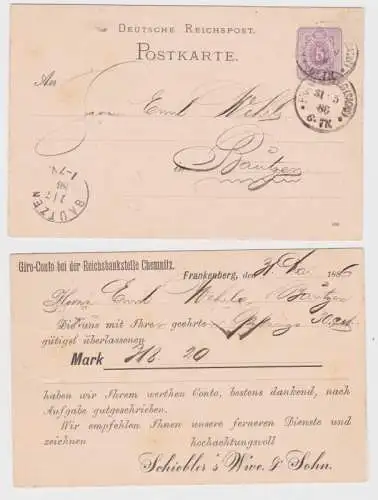 DEUTSCHE REICHSPOST.
POSTKARTE.
An
Emil
in Bautzen
31
5
86
6-7N.
BAUTZEN
1/6
86
1-7V.
Giro-Conto bei der Reichsbankstelle Chemnitz.
Frankenberg, den 31. Mai 1886
Herrn Emil Bautzen
Die uns mit Ihrer geehrten
gütigst überlassenen
Mark 20
haben wir Ihrem werthen Conto, bestens dankend, nach
Aufgabe gutgeschrieben.
Wir empfehlen Ihnen unsere ferneren Dienste und
zeichnen hochachtungsvoll
Schiebler's Wwe. & Sohn.